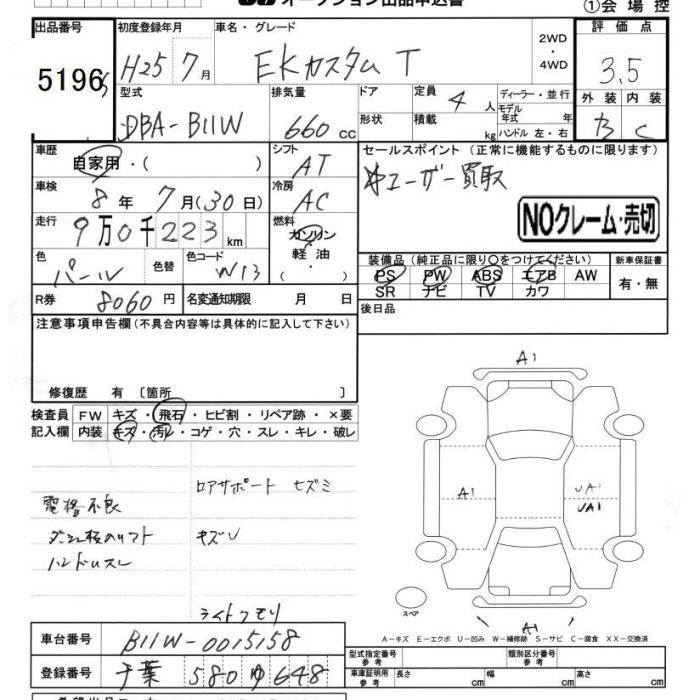 オークション出品申込書
①会場控
出品番号
5196
初度登録年月
H25 7月
車名・グレード
EKカスタム T
2WD
・
4WD
評価点
3.5
型式
DBA-B11W
排気量
660 cc
ドア
形状
定員 4 人
積載 kg
ディーラー・並行
モデル年式 年
ハンドル 左・右
外装 内装
C
車歴
自家用・( )
シフト
AT
車検
8年 7月(30日)
冷房
AC
走行
9万0千223km
燃料
ガソリン
軽油
( )
色
パール
色替
色コード
W13
R券
8060円
名変通知期限 月 日
セールスポイント (正常に機能するものに限ります)
ユーザー買取
NOクレーム・売切
装備品 (純正品に限り○をつけてください)
PS PW ABS エアB AW
SR ナビ TV カワ
新車保証書
有・無
後日品
注意事項申告欄(不具合内容等は具体的に記入して下さい)
修復歴 有 〔箇所 〕
検査員
記入欄
FW キズ・飛石・ヒビ割・リペア跡・×要
内装 キズ・汚レ・コゲ・穴・スレ・キレ・破レ
ロアサポート ヒズミ
電格不良
キズU
ハンドルスレ
ライトクモリ
A1
A1
UA1
UA1
A1
スペア
A-キズ E-エクボ U-凹み W-補修跡 S-サビ C-腐食 XX-交換済
車台番号
B11W-0015158
登録番号
千葉 580 ゆ 648
型式指定番号
参考
類別区分番号
参考
車庫証明用
参考
長さ cm
幅 cm
高さ cm